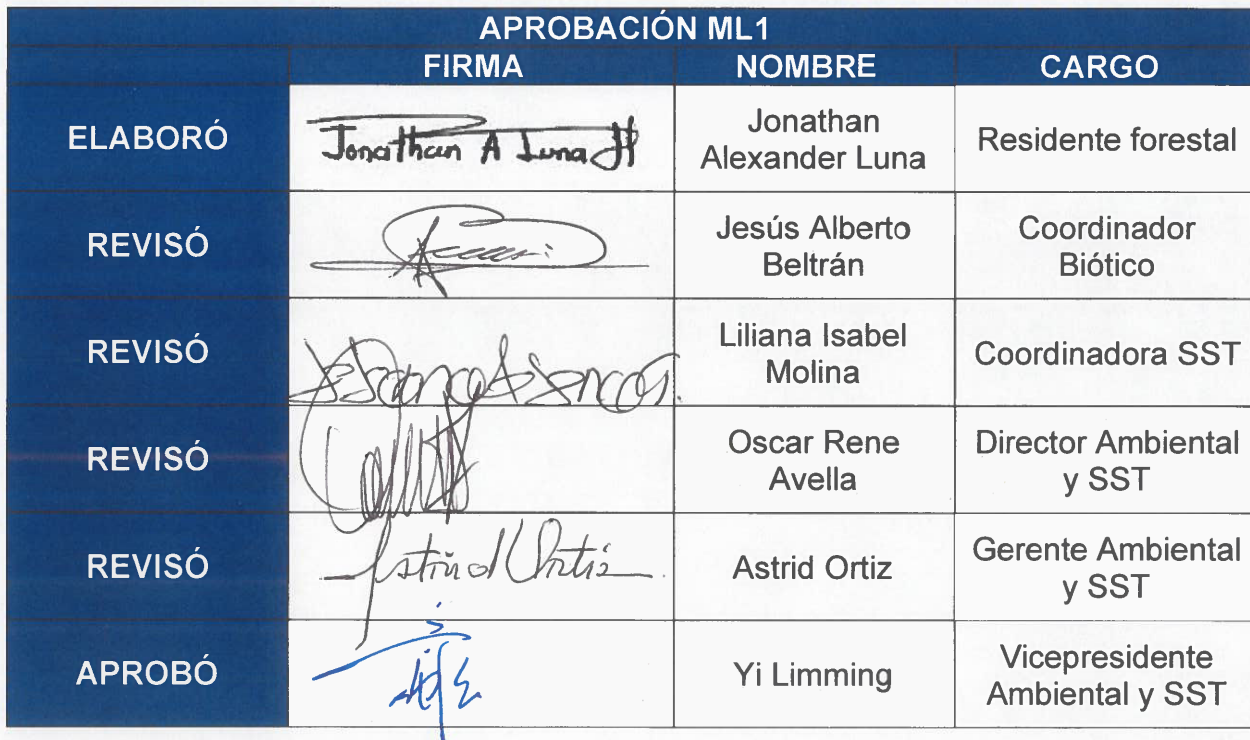 APROBACIÓN ML1
FIRMA NOMBRE CARGO
ELABORÓ Jonathan A Luna H Jonathan Alexander Luna Residente forestal
REVISÓ Jesús Alberto Beltrán Coordinador Biótico
REVISÓ Liliana Isabel Molina Coordinadora SST
REVISÓ Oscar Rene Avella Director Ambiental y SST
REVISÓ Astrid Ortiz Astrid Ortiz Gerente Ambiental y SST
APROBÓ Yi Limming Vicepresidente Ambiental y SST